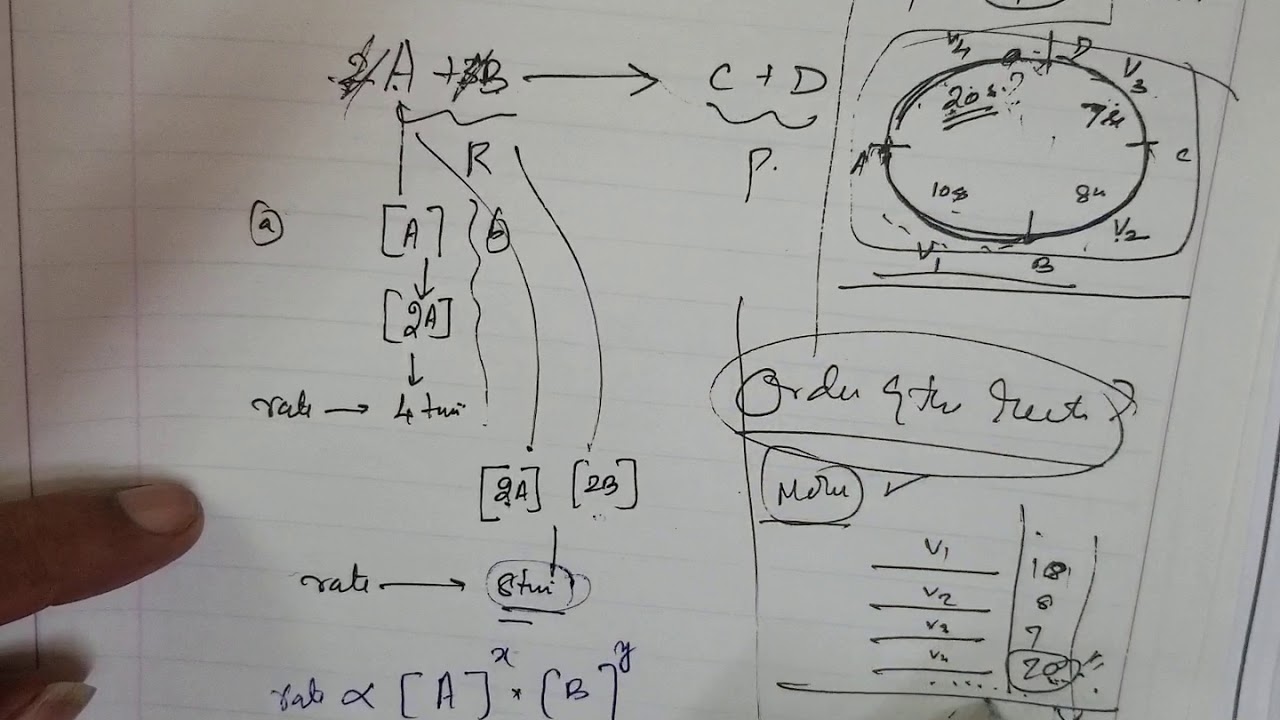 A + B ⟶ C + D
R
P.
ⓐ [A] ⓑ
[2A]
rate → 4 tm
[2A] [2B]
rate ⟶ 8 tm
rate ∝ [A]^x * [B]^y
V4 D V3
20s ?
7s
A C
10s 8s
V1 B V2
Order of the
V1 10
V2 8
V3 7
V4 20